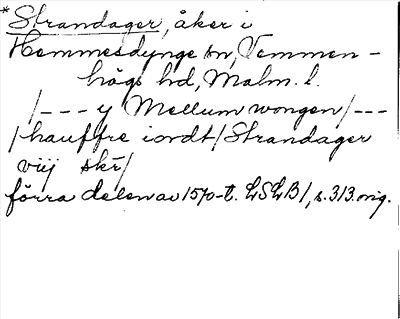 *Strandager, åker i
Hemmesdynge sn, Vemmen-
högs hd, Malm. l.
/--- y Mellum wongen/---
/hauffre iordt/Strandager
viij skr/
förra delen av 1570-t. LSLB1, s. 313. orig.